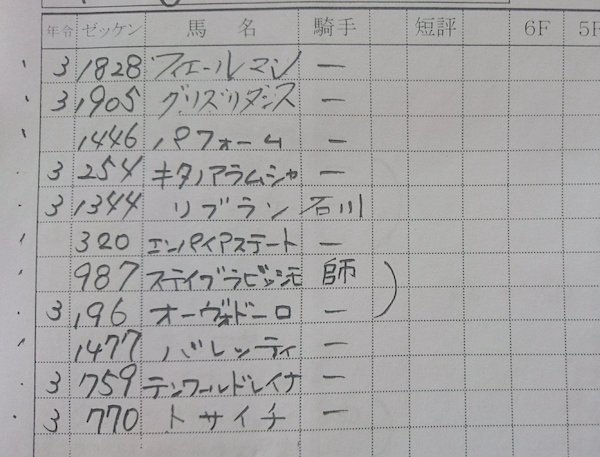 年令 ゼッケン 馬名 騎手 短評 6F 5F
3 1828 フィエールマン ー
3 1905 グリズリダンス ー
1446 パフォーム ー
3 254 キタノアラムシャ ー
3 1344 リブラン 石川
320 エンパイアステート ー
987 ステイブラビッシモ 師
3 196 オーヴォドーロ ー
1477 バレッティ ー
3 759 テンワールドレイナ ー
3 770 トサイチ ー